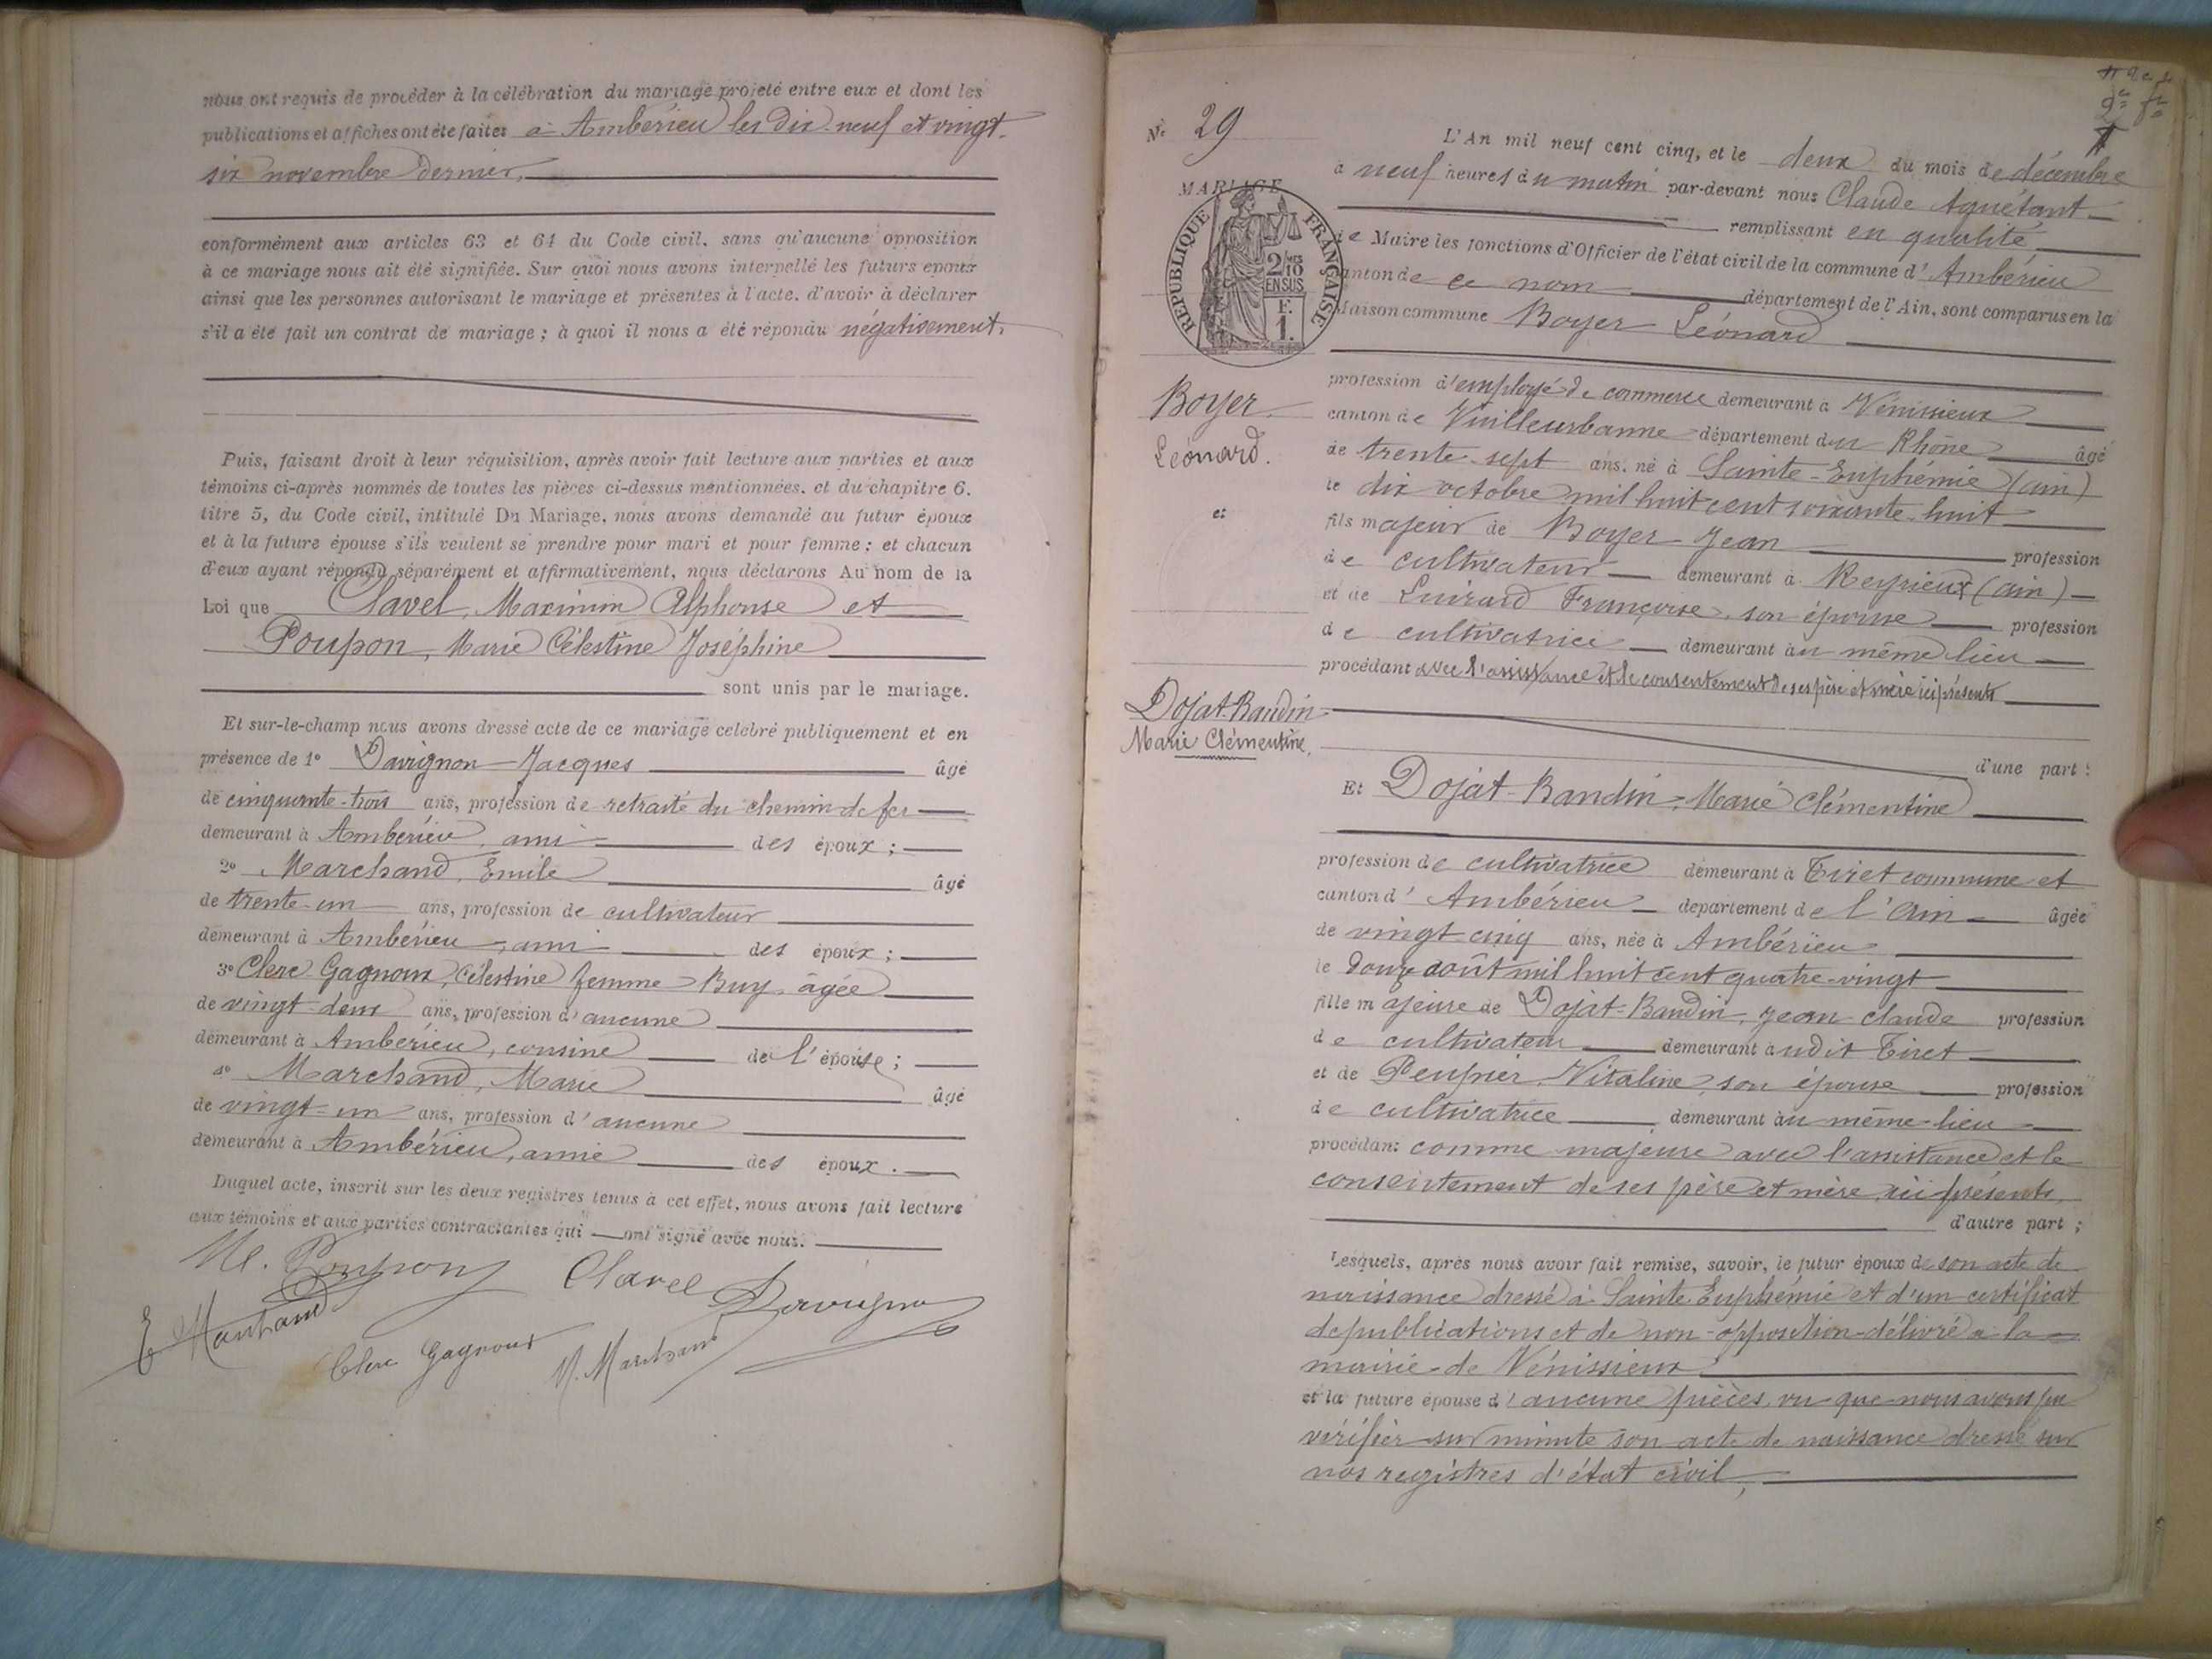 nous ont requis de procéder à la célébration du mariage projeté entre eux et dont les
publications et affiches ont été faites à Ambérieu les dix-neuf et vingt-
six novembre dernier,
conformément aux articles 63 et 64 du Code civil, sans qu'aucune opposition
à ce mariage nous ait été signifiée. Sur quoi nous avons interpellé les futurs époux
ainsi que les personnes autorisant le mariage et présentes à l'acte, d'avoir à déclarer
s'il a été fait un contrat de mariage ; à quoi il nous a été répondu négativement.
Puis, faisant droit à leur réquisition, après avoir fait lecture aux parties et aux
témoins ci-après nommés de toutes les pièces ci-dessus mentionnées, et du chapitre 6,
titre 5, du Code civil, intitulé Du Mariage, nous avons demandé au futur époux
et à la future épouse s'ils veulent se prendre pour mari et pour femme ; et chacun
d'eux ayant répondu séparément et affirmativement, nous déclarons Au nom de la
Loi que Clavel, Maximin Alphonse et
Poupon, Marie Célestine Joséphine
sont unis par le mariage.
Et sur-le-champ nous avons dressé acte de ce mariage célébré publiquement et en
présence de 1° Davignon Jacques âgé
de cinquante-trois ans, profession de retraité du chemin de fer
demeurant à Ambérieu, ami des époux ;
2° Marchand, Emile âgé
de trente-un ans, profession de cultivateur
demeurant à Ambérieu, ami des époux ;
3° Clerc Gagnoux, Célestine femme Buy, âgée
de vingt-deux ans, profession d'aucune
demeurant à Ambérieu, cousine de l'épouse ;
4° Marchand, Marie âgé
de vingt-un ans, profession d'aucune
demeurant à Ambérieu, amie des époux.
Duquel acte, inscrit sur les deux registres tenus à cet effet, nous avons fait lecture
aux témoins et aux parties contractantes qui ont signé avec nous.
M. Poupon Clavel Davignon
E Marchand Clerc Gagnoux M. Marchand
N° 29
MARIAGE
RÉPUBLIQUE FRANÇAISE
2/10 EN SUS
F. 1.
L'An mil neuf cent cinq, et le deux du mois de décembre
à neuf heures du matin par-devant nous Claude Aguétant
remplissant en qualité
de Maire les fonctions d'Officier de l'état civil de la commune d'Ambérieu
canton de ce nom département de l'Ain, sont comparus en la
Maison commune Boyer Léonard
Boyer
Léonard.
et
Dojat-Bandin
Marie Clémentine.
profession d'employé de commerce demeurant à Vénissieux
canton de Vuilleurbanne département du Rhône âgé
de trente-sept ans, né à Sainte-Euphémie (ain)
le dix octobre mil huit cent soixante-huit
fils majeur de Boyer Jean profession
de cultivateur demeurant à Reyrieux (ain)
et de Luirard Françoise, son épouse profession
de cultivatrice demeurant au même lieu
procédant avec l'assistance et le consentement de ses père et mère ici présents
d'une part ;
Et Dojat-Bandin, Marie Clémentine
profession de cultivatrice demeurant à Tiret commune et
canton d'Ambérieu département de l'Ain âgée
de vingt-cinq ans, née à Ambérieu
le douze août mil huit cent quatre-vingt
fille majeure de Dojat-Bandin, Jean Claude profession
de cultivateur demeurant audit Tiret
et de Peuprier Vitaline, son épouse profession
de cultivatrice demeurant au même lieu
procédant comme majeure avec l'assistance et le
consentement de ses père et mère, ici présents,
d'autre part ;
Lesquels, après nous avoir fait remise, savoir, le futur époux de son acte de
naissance dressé à Sainte Euphémie et d'un certificat
de publications et de non-opposition délivré à la
mairie de Vénissieux
et la future épouse d'aucune pièces, vu que nous avons pu
vérifier sur minute son acte de naissance dressé sur
nos registres d'état civil,